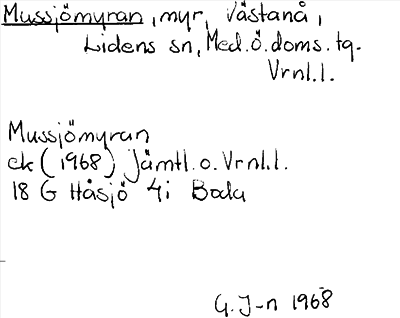 Mussjömyran, myr, Västanå,
Lidens sn, Med.ö.doms.tg.
Vrnl.l.
Mussjömyran
ek (1968) Jämtl.o.Vrnl.l.
18 G Håsjö 4i Boda
G.J-n 1968